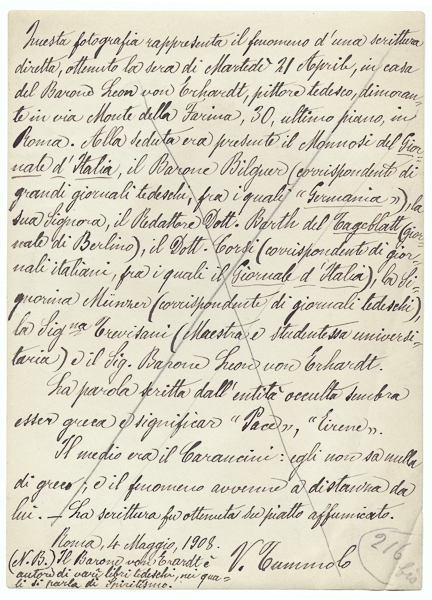 Questa fotografia rappresenta il fenomeno d'una scrittura
diretta, ottenuto la sera di Martedì 21 Aprile, in casa
del Barone Leon von Erhardt, pittore tedesco, dimoran-
te in via Monte della Farina, 30, ultimo piano, in
Roma. Alla seduta era presente il Monnosi del Gior-
nale d'Italia, il Barone Bilguer (corrispondente di
grandi giornali tedeschi, fra i quali "Germania"), la
sua Signora, il Redattore Dott. Barth del Tageblatt (gior-
nale di Berlino), il Dott. Corbi (corrispondente di gior-
nali italiani, fra i quali il Giornale d'Italia), la Si-
gnorina Münzer (corrispondente di giornali tedeschi),
la Signa Trevisani (Maestra e studentessa universi-
taria) e il Sig. Barone Leon von Erhardt.
La parola scritta dall'entità occulta sembra
esser greca e significar "Pace", "Eirene".
Il medio era il Carancini: egli non sa nulla
di greco; e il fenomeno avvenne a distanza da
lui. — La scrittura fu ottenuta su piatto affumicato.
Roma, 4 Maggio, 1908.
(N.B.) Il Barone von Erardt è
V. Tummolo
autore di varii libri tedeschi, nei qua-
li si parla di Spiritismo.
216
bis